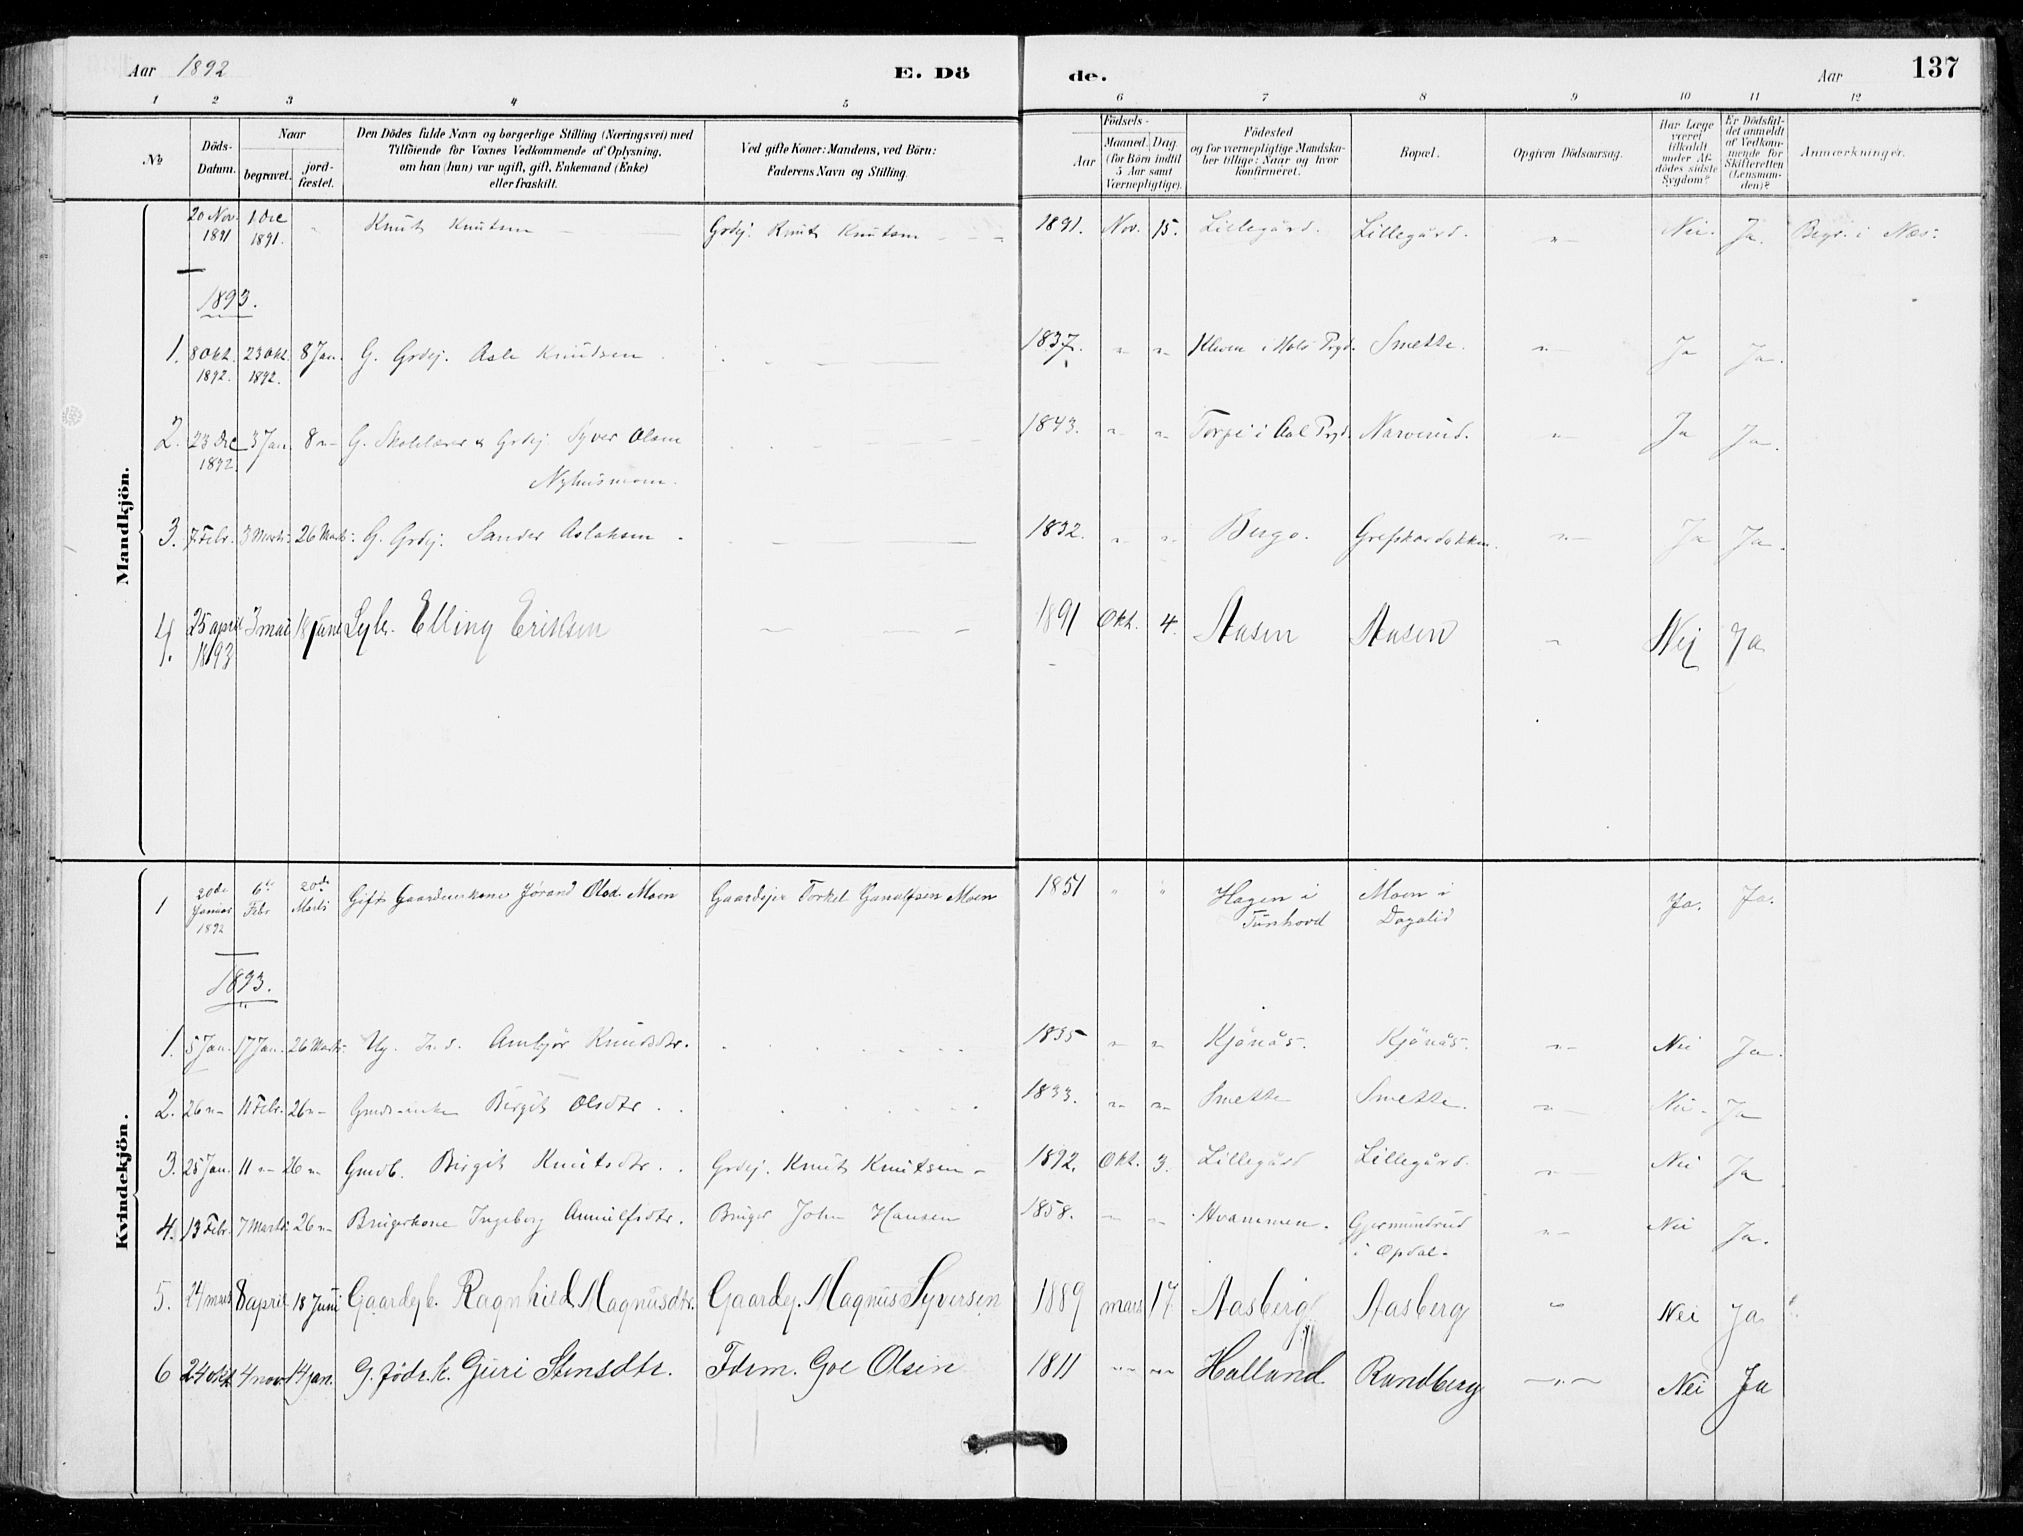 Aar 1892 E. Dö de. Aar 137
1 2 3 4 5 6 7 8 9 10 11 12
No Döds-Datum. Naar begravet. jord-fæstet. Den Dödes fulde Navn og borgerlige Stilling (Næringsvei) med Tilföiende for Voxnes Vedkommende af Oplysning, om han (hun) var ugift, gift, Enkemand (Enke) eller fraskilt. Ved gifte Koner: Mandens, ved Börn: Faderens Navn og Stilling. Födsels- Aar Maaned. Dag. (for Börn indtil 5 Aar samt Værnepligtige). Födested og for værnepligtige Mandskaber tillige: Naar og hvor konfirmeret. Bopæl. Opgiven Dödsaarsag. Har Læge været tilkaldt under Afdödes sidste Sygdom? Er Dödsfaldet anmeldt af Vedkommende for Skifteretten (Lensmanden)? Anmærkninger.
Mandkjön.
20 Nov. 1891 1 Dec 1891. " Knut Knutsen Grdej. Knut Knutsen 1891. Nov. 15. Lillegård. Lillegård. " Nei. Ja. Begr. i Næs.
1893.
1. 8 Okt. 1892. 23 Okt. 1892. 8 Jan. G. Grdej. Asle Knudsen 1837. " " Kleven i Hols Prgd. Smette. " Ja Ja.
2. 23 Dec 1892. 3 Jan. 8 "- G. Skolelærer & Grdej. Syver Olsen 1843. " " Torpe i Aal Prgd. Narverud. " Ja Ja.
Nyhusmoen.
3. 7 Febr. 3 Marts. 26 Marts. G. Grdej. Sander Aslaksen 1832. " " Berge. " Ja Ja.
4. 25 april 1893 3 mai 18 June Elling Eriksen 1891 Okt. 4. Aasen Aasen " Nej Ja
Kvindekjön.
1 20de Januar 1892 6te Febr 20de Marts Gift Gaardmerkone Jörand Olsd. Moen Gaardejer Torkel Gunulfsen Moen 1851 " " Hagen i Tunhovd Moen i Dagalid Ja. Ja.
1893.
1. 5 Jan. 17 Jan. 26 Marts. Ug. Ind. Ambjör Knudsdtr. 1835 " " Kjönås. Kjönås. " Nei Ja.
2. 26 "- 11 Febr. 26 "- Birgit Olsdtr. 1833. " " Smette Smette. " Nei. Ja
3. 25 Jan. 11 "- 26 "- Gmdb. Birgit Knutsdtr. Grdej. Knut Knutsen 1892. Okt. 3. Lillegård Lillegård. " Nei Ja
4. 13 Febr. 7 Marts 26 "- Brugerkone Ingeborg Arnulfsdtr. Bruger John Hansen 1858. " " Hvammen. Gjermundrud i Opdal. " Nei Ja.
5. 24 mars 8 april 18 Juni Gaardejb. Ragnhild Magnusdtr. Gaardej. Magnus Syversen 1889 mars 17 Aasberg Aasberg " Nei Ja
6 24 okt 4 nov. 14 jan. G. föder. k. Guri Stensdtr. Fdrm. Goe Olsen 1811 " " Halland Rundberg " Nei Ja